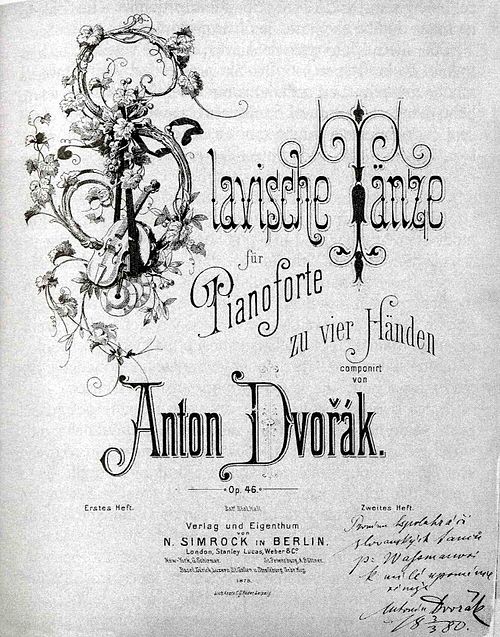 Slavische Tänze
für
Pianoforte
zu vier Händen
componirt
von
Anton Dvořák.
Op. 46.
Erstes Heft.
Zweites Heft.
Verlag und Eigenthum
von
N. SIMROCK IN BERLIN.
London, Stanley Lucas, Weber & Co.
New-York, G. Schirmer.
St. Petersburg, A. Büttner.
1878.
slovanských tanců
Antonín Dvořák
1880.